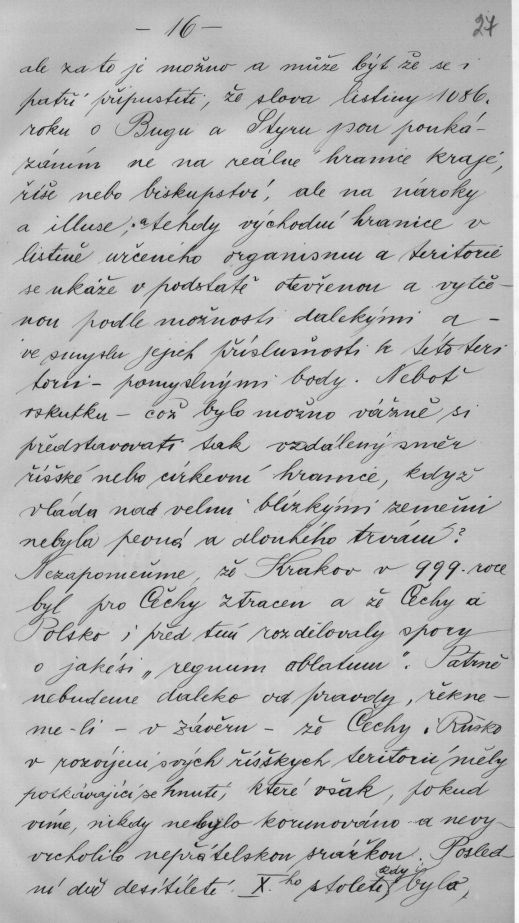 - 16 -
27
ale za to je možno a může být že se i
patří připustiti, že slova listiny 1086.
roku o Bugu a Styru jsou pouká-
záním ne na reálné hranice kraje,
říše nebo biskupství, ale na nároky
a illuse, a tehdy východní hranice v
listině určeného organismu a teritorie
se ukáže v podstatě otevřenou a vytče-
nou podle možnosti dalekými a -
ve smyslu jejich příslušnosti k této teri
torii - pomyslnými body. Neboť
vskutku - což bylo možno vážně si
představovati tak vzdálený směr
říšské nebo církevní hranice, když
vláda nad velmi blízkými zeměmi
nebyla pevná a dlouhého trvání?
Nezapomeňme, že Krakov v 999. roce
byl pro Čechy ztracen a že Čechy a
Polsko i před tím rozdělovaly spory
o jakési „regnum ablatum". Patrně
nebudeme daleko od pravdy, řekne-
me-li - v závěru - že Čechy i Rusko
v rozvíjení svých říšských teritorií měly
potkávající se hnutí, které však, pokud
víme, nikdy nebylo korunováno a nevy
vrcholilo nepřátelskou srážkou. Posled
ní dvě desítiletí X.ho století byla,